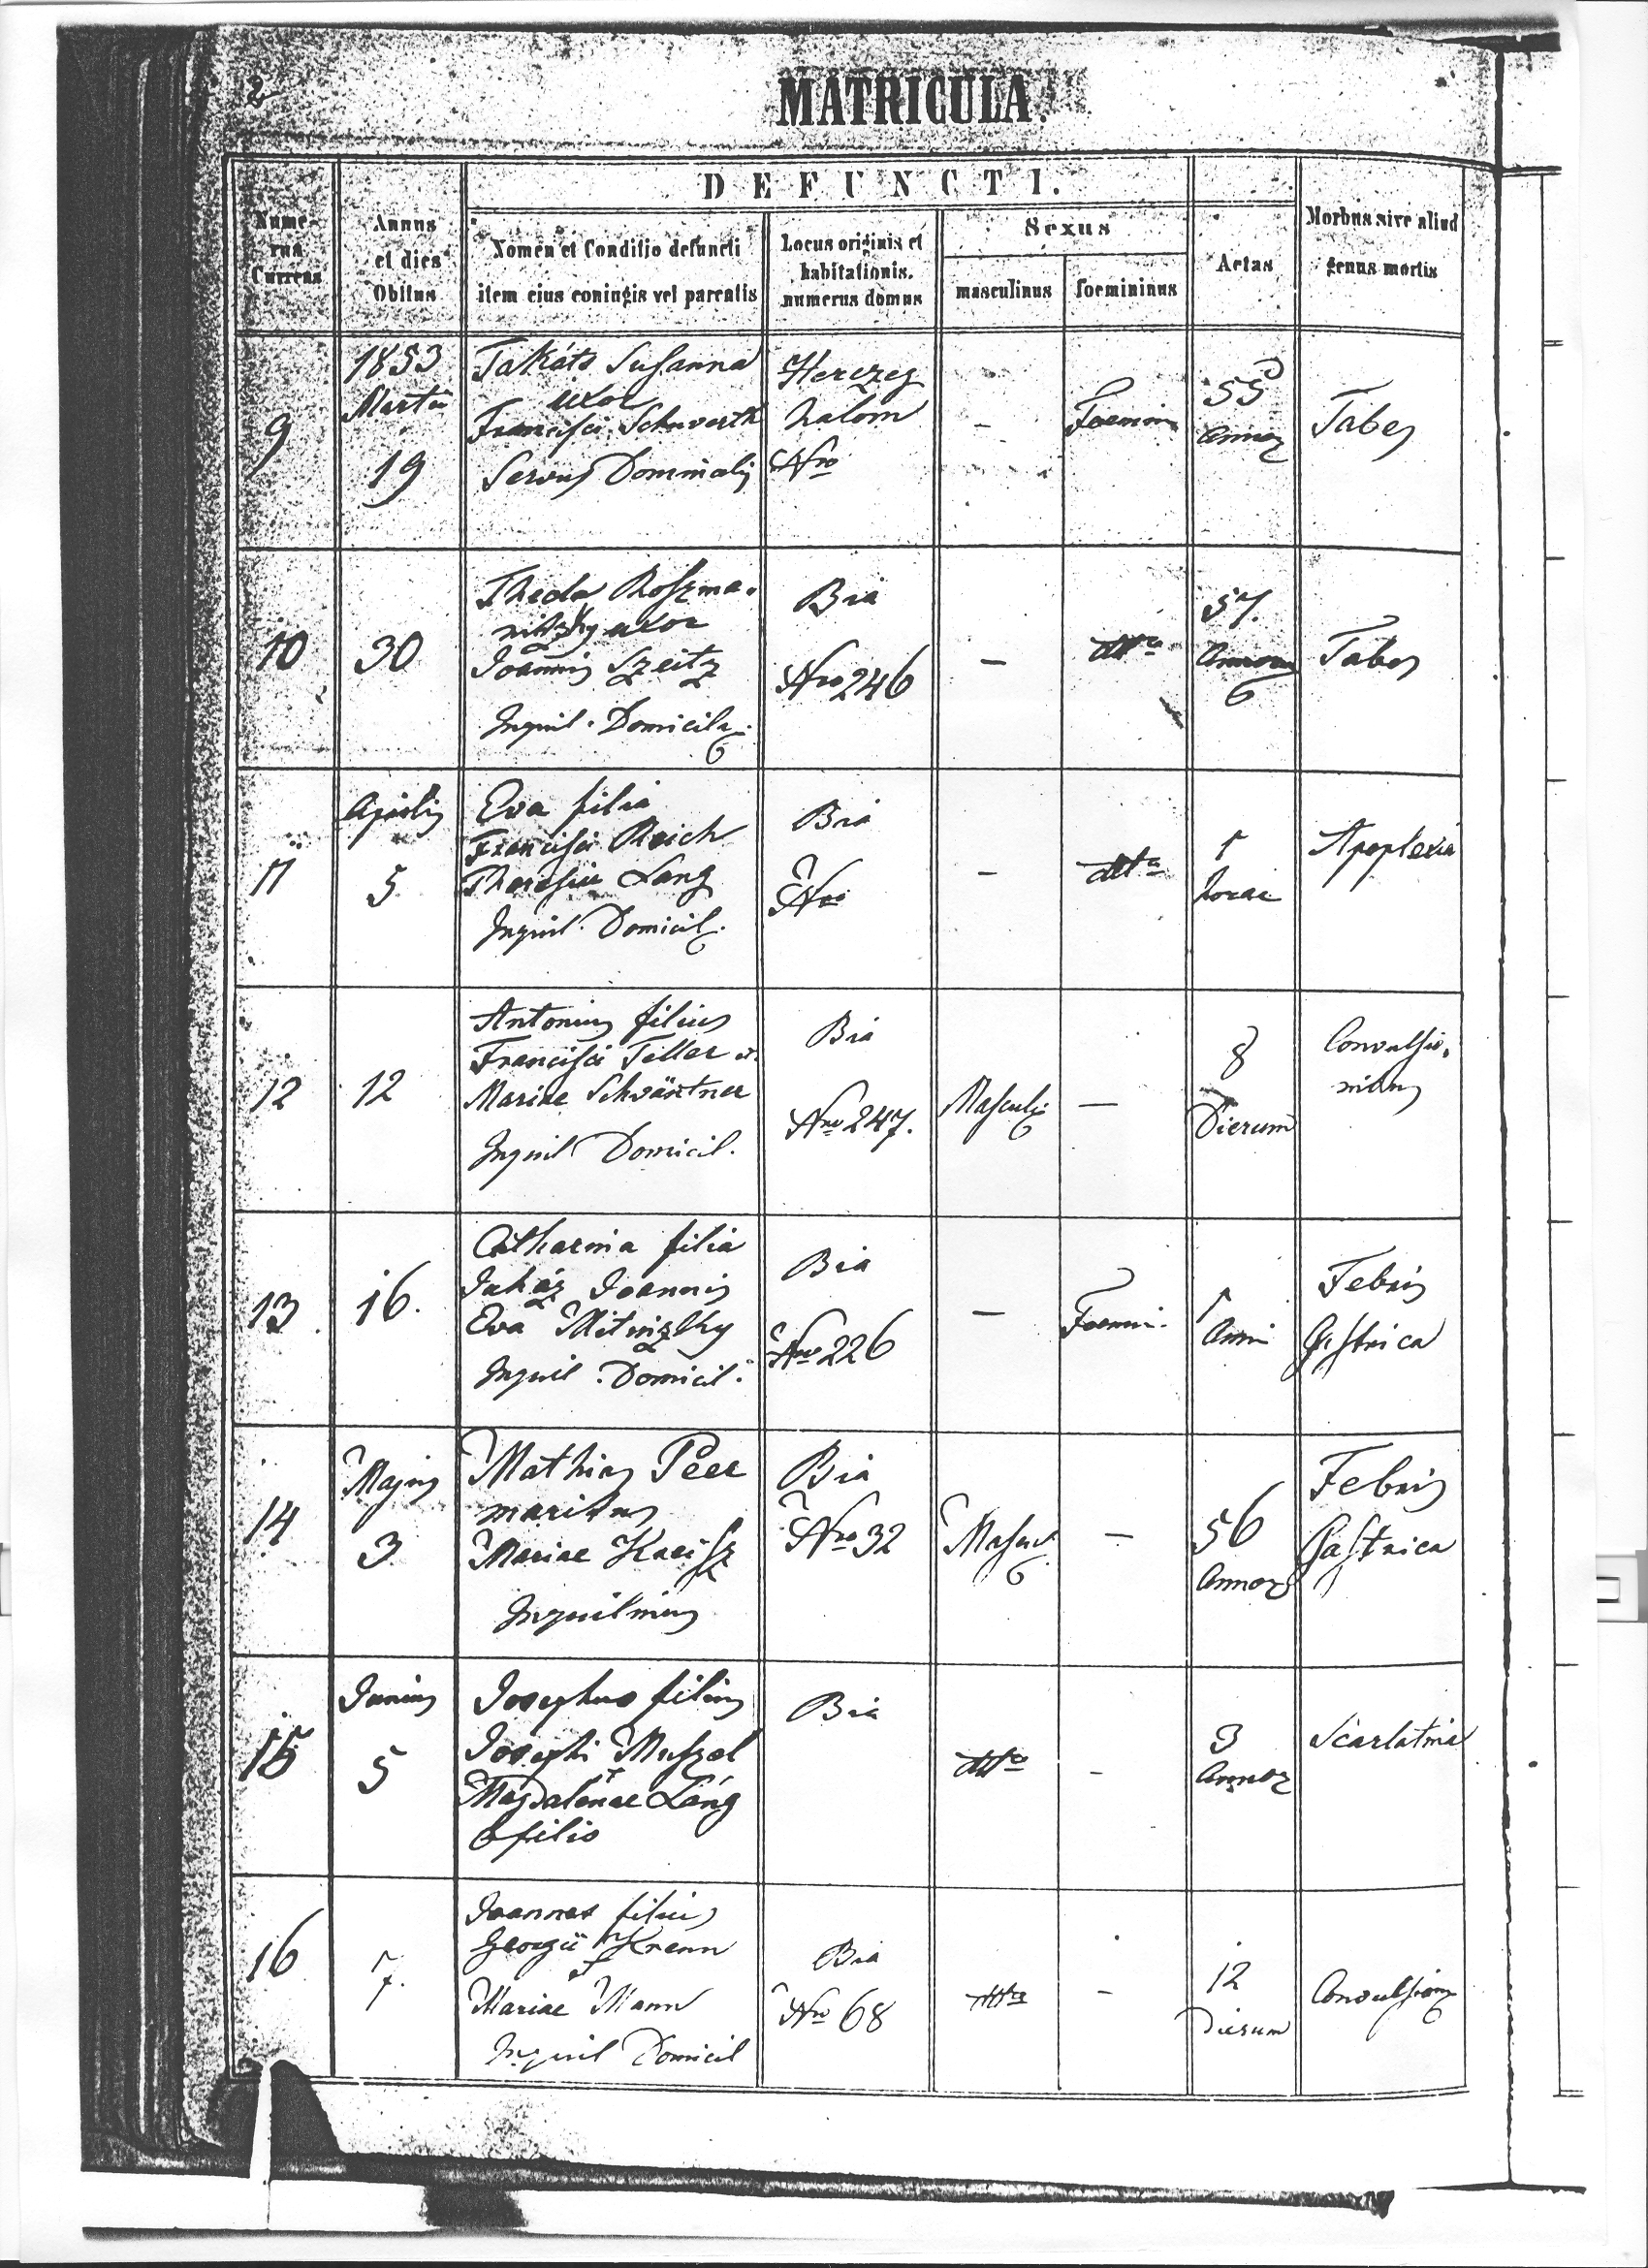 2
MATRICULA.
DEFUNCTI.
Nume-
rus
Currens
Annus
et dies
Obitus
Nomen et Conditio defuncti
item eius coniugis vel parentis
Locus originis et
habitationis.
numerus domus
Sexus
masculinus
foemininus
Aetas
Morbus sive aliud
genus mortis
9
1853
Martii
19
Takáts Susanna
uxor
Francisci Schwerth
Servus Dominalis
Herczeg
halom
Nro
-
Foemin
55
Annor
Tabes
10
30
Theda Roszma-
uxor
Joannis Szeitz
Inquil. Domicil.
Bia
Nro 246
-
dtto
57.
Annorum
Tabes
11
Aprilis
5
Eva filia
Francisci Reich
Theresiae Lang
Inquil. Domicil.
Bia
Nro
-
dtto
1
horae
Apoplexia
12
12
Antonius filius
Francisci Teller et
Mariae Schwärtner
Inquil Domicil.
Bia
Nro 247.
Masculi
-
8
Dierum
Convulsio-
nibus
13
16.
Catharina filia
Juház Joannis
Eva Mitnizky
Inquil. Domicil.
Bia
Nro 226
-
Foemin.
1
Anni
Febris
Gastrica
14
Majus
3
Mathias Peer
maritus
Mariae Kreisz
Inquilinus
Bia
Nro 32
Mascul
-
56
Annor
Febris
Gastrica
15
Junius
5
Josephus filius
Josephi Muszel
et
Magdalenae Láng
filio
Bia
dtto
-
3
Annor
Scarlatina
16
7.
Joannes filius
Georgii Krenn
et
Mariae Mann
Inquil Domicil
Bia
Nro 68
dtto
-
12
Dierum
Convulsion